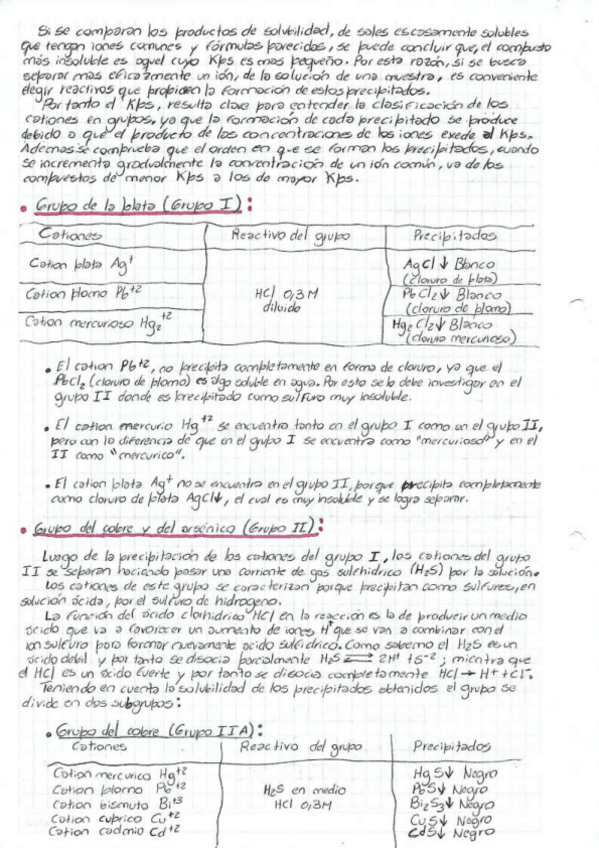 Si se comparan los productos de solubilidad, de sales escasamente solubles
que tengan iones comunes y fórmulas parecidas, se puede concluir que, el compuesto
más insoluble es aquel cuyo Kps es mas pequeño. Por esta razón, si se busca
separar mas eficazmente un ión, de la solución de una muestra, es conveniente
elegir reactivos que propicien la formación de estos precipitados.
Por tanto el Kps, resulta clave para entender la clasificación de los
cationes en grupos, ya que la formación de cada precipitado se produce
debido a que el producto de las concentraciones de los iones exede al Kps.
Ademas se comprueba que el orden en que se forman los precipitados, cuando
se incrementa gradualmente la concentración de un ión común, va de los
compuestos de menor Kps a los de mayor Kps.
• Grupo de la plata (Grupo I):
Cationes Reactivo del grupo Precipitados
Cation plata Ag⁺ AgCl↓ Blanco
(cloruro de plata)
Cation plomo Pb⁺² HCl 0,3M PbCl₂↓ Blanco
diluido (cloruro de plomo)
Cation mercurioso Hg₂⁺² Hg₂Cl₂↓ Blanco
(cloruro mercurioso)
• El cation Pb⁺², no precipita completamente en forma de cloruro, ya que el
PbCl₂ (cloruro de plomo) es algo soluble en agua. Por esto se lo debe investigar en el
grupo II donde es precipitado como sulfuro muy insoluble.
• El cation mercurio Hg⁺² se encuentra tanto en el grupo I como en el grupo II,
pero con la diferencia de que en el grupo I se encuentra como "mercurioso" y en el
II como "mercurico".
• El cation plata Ag⁺ no se encuentra en el grupo II, porque precipita completamente
como cloruro de plata AgCl↓, el cual es muy insoluble y se logra separar.
• Grupo del cobre y del arsénico (Grupo II):
Luego de la precipitación de los cationes del grupo I, los cationes del grupo
II se separan haciendo pasar una corriente de gas sulfhidrico (H₂S) por la solución.
Los cationes de este grupo se caracterizan porque precipitan como sulfuros, en
solución ácida, por el sulfuro de hidrogeno.
La función del ácido clorhidrico HCl en la reacción es la de producir un medio
ácido que va a favorecer un aumento de iones H⁺ que se van a combinar con el
ion sulfuro para formar nuevamente acido sulfidrico. Como sabemo el H₂S es un
ácido debil y por tanto se disocia parcialmente H₂S ⇌ 2H⁺ + S⁻²; mientra que
el HCl es un ácido fuerte y por tanto se disocia completamente HCl → H⁺ + Cl⁻.
Teniendo en cuenta la solubilidad de los precipitados obtenidos el grupo se
divide en dos subgrupos:
• Grupo del cobre (Grupo II A):
Cationes Reactivo del grupo Precipitados
Cation mercurico Hg⁺² HgS↓ Negro
Cation plomo Pb⁺² H₂S en medio PbS↓ Negro
Cation bismuto Bi⁺³ HCl 0,3M Bi₂S₃↓ Negro
Cation cuprico Cu⁺² CuS↓ Negro
Cation cadmio Cd⁺² CdS↓ Negro